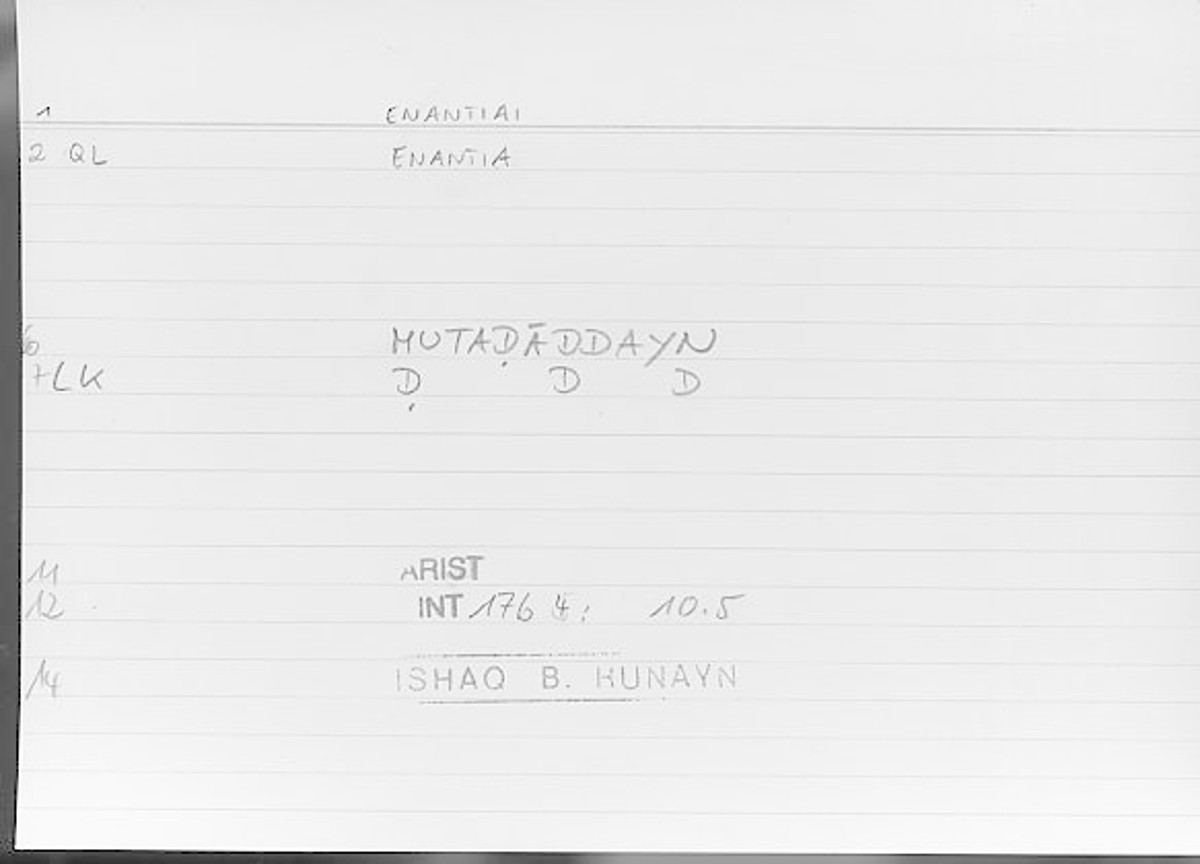 1 ENANTIAI
2 QL ENANTIA
6 MUTAḌĀDDAYN
7LK Ḍ D D
11 ARIST
12 INT 176 4: 10.5
14 ISHAQ B. HUNAYN